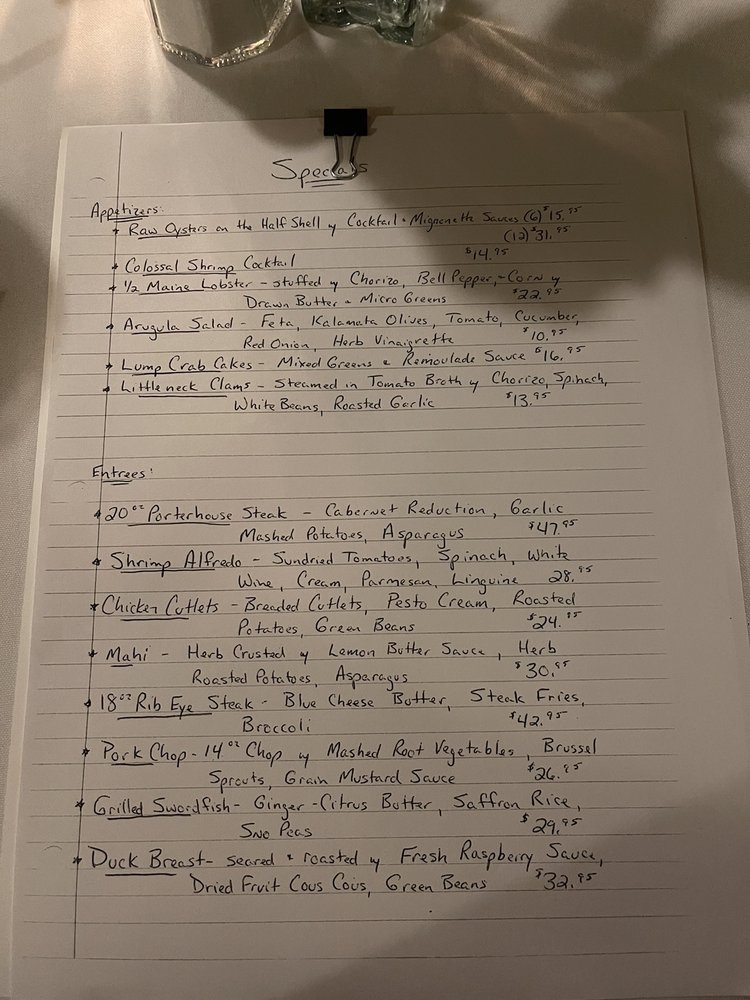 Specials
Appetizers:
* Raw Oysters on the Half Shell w/ Cocktail + Mignonette Sauces (6) $15.95
(12) $31.95
* Colossal Shrimp Cocktail $14.95
* 1/2 Maine Lobster - stuffed w/ Chorizo, Bell Pepper, + Corn w/
Drawn Butter + Micro Greens $22.95
* Arugula Salad - Feta, Kalamata Olives, Tomato, Cucumber,
Red Onion, Herb Vinaigrette $10.95
* Lump Crab Cakes - Mixed Greens + Remoulade Sauce $16.95
* Littleneck Clams - Steamed in Tomato Broth w/ Chorizo, Spinach,
White Beans, Roasted Garlic $13.95
Entrees:
* 20oz Porterhouse Steak - Cabernet Reduction, Garlic
Mashed Potatoes, Asparagus $47.95
* Shrimp Alfredo - Sundried Tomatoes, Spinach, White
Wine, Cream, Parmesan, Linguine 28.95
* Chicken Cutlets - Breaded Cutlets, Pesto Cream, Roasted
Potatoes, Green Beans $24.95
* Mahi - Herb Crusted w/ Lemon Butter Sauce, Herb
Roasted Potatoes, Asparagus $30.95
* 18oz Rib Eye Steak - Blue Cheese Butter, Steak Fries,
Broccoli $42.95
* Pork Chop - 14oz Chop w/ Mashed Root Vegetables, Brussel
Sprouts, Grain Mustard Sauce $26.95
* Grilled Swordfish - Ginger-Citrus Butter, Saffron Rice,
Sno Peas $29.95
* Duck Breast - seared + roasted w/ Fresh Raspberry Sauce,
Dried Fruit Cous Cous, Green Beans $32.95